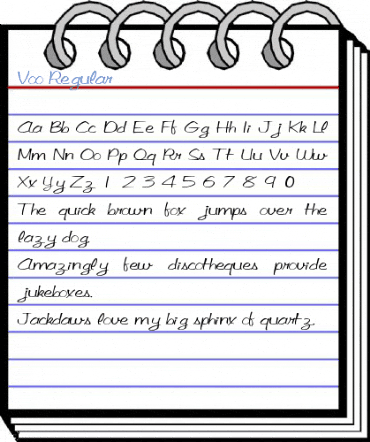 Voo Regular
Aa Bb Cc Dd Ee Ff Gg Hh Ii Jj Kk Ll
Mm Nn Oo Pp Qq Rr Ss Tt Uu Vv Ww
Xx Yy Zz 1 2 3 4 5 6 7 8 9 0
The quick brown fox jumps over the
lazy dog
Amazingly few discotheques provide
jukeboxes.
Jackdaws love my big sphinx of quartz.